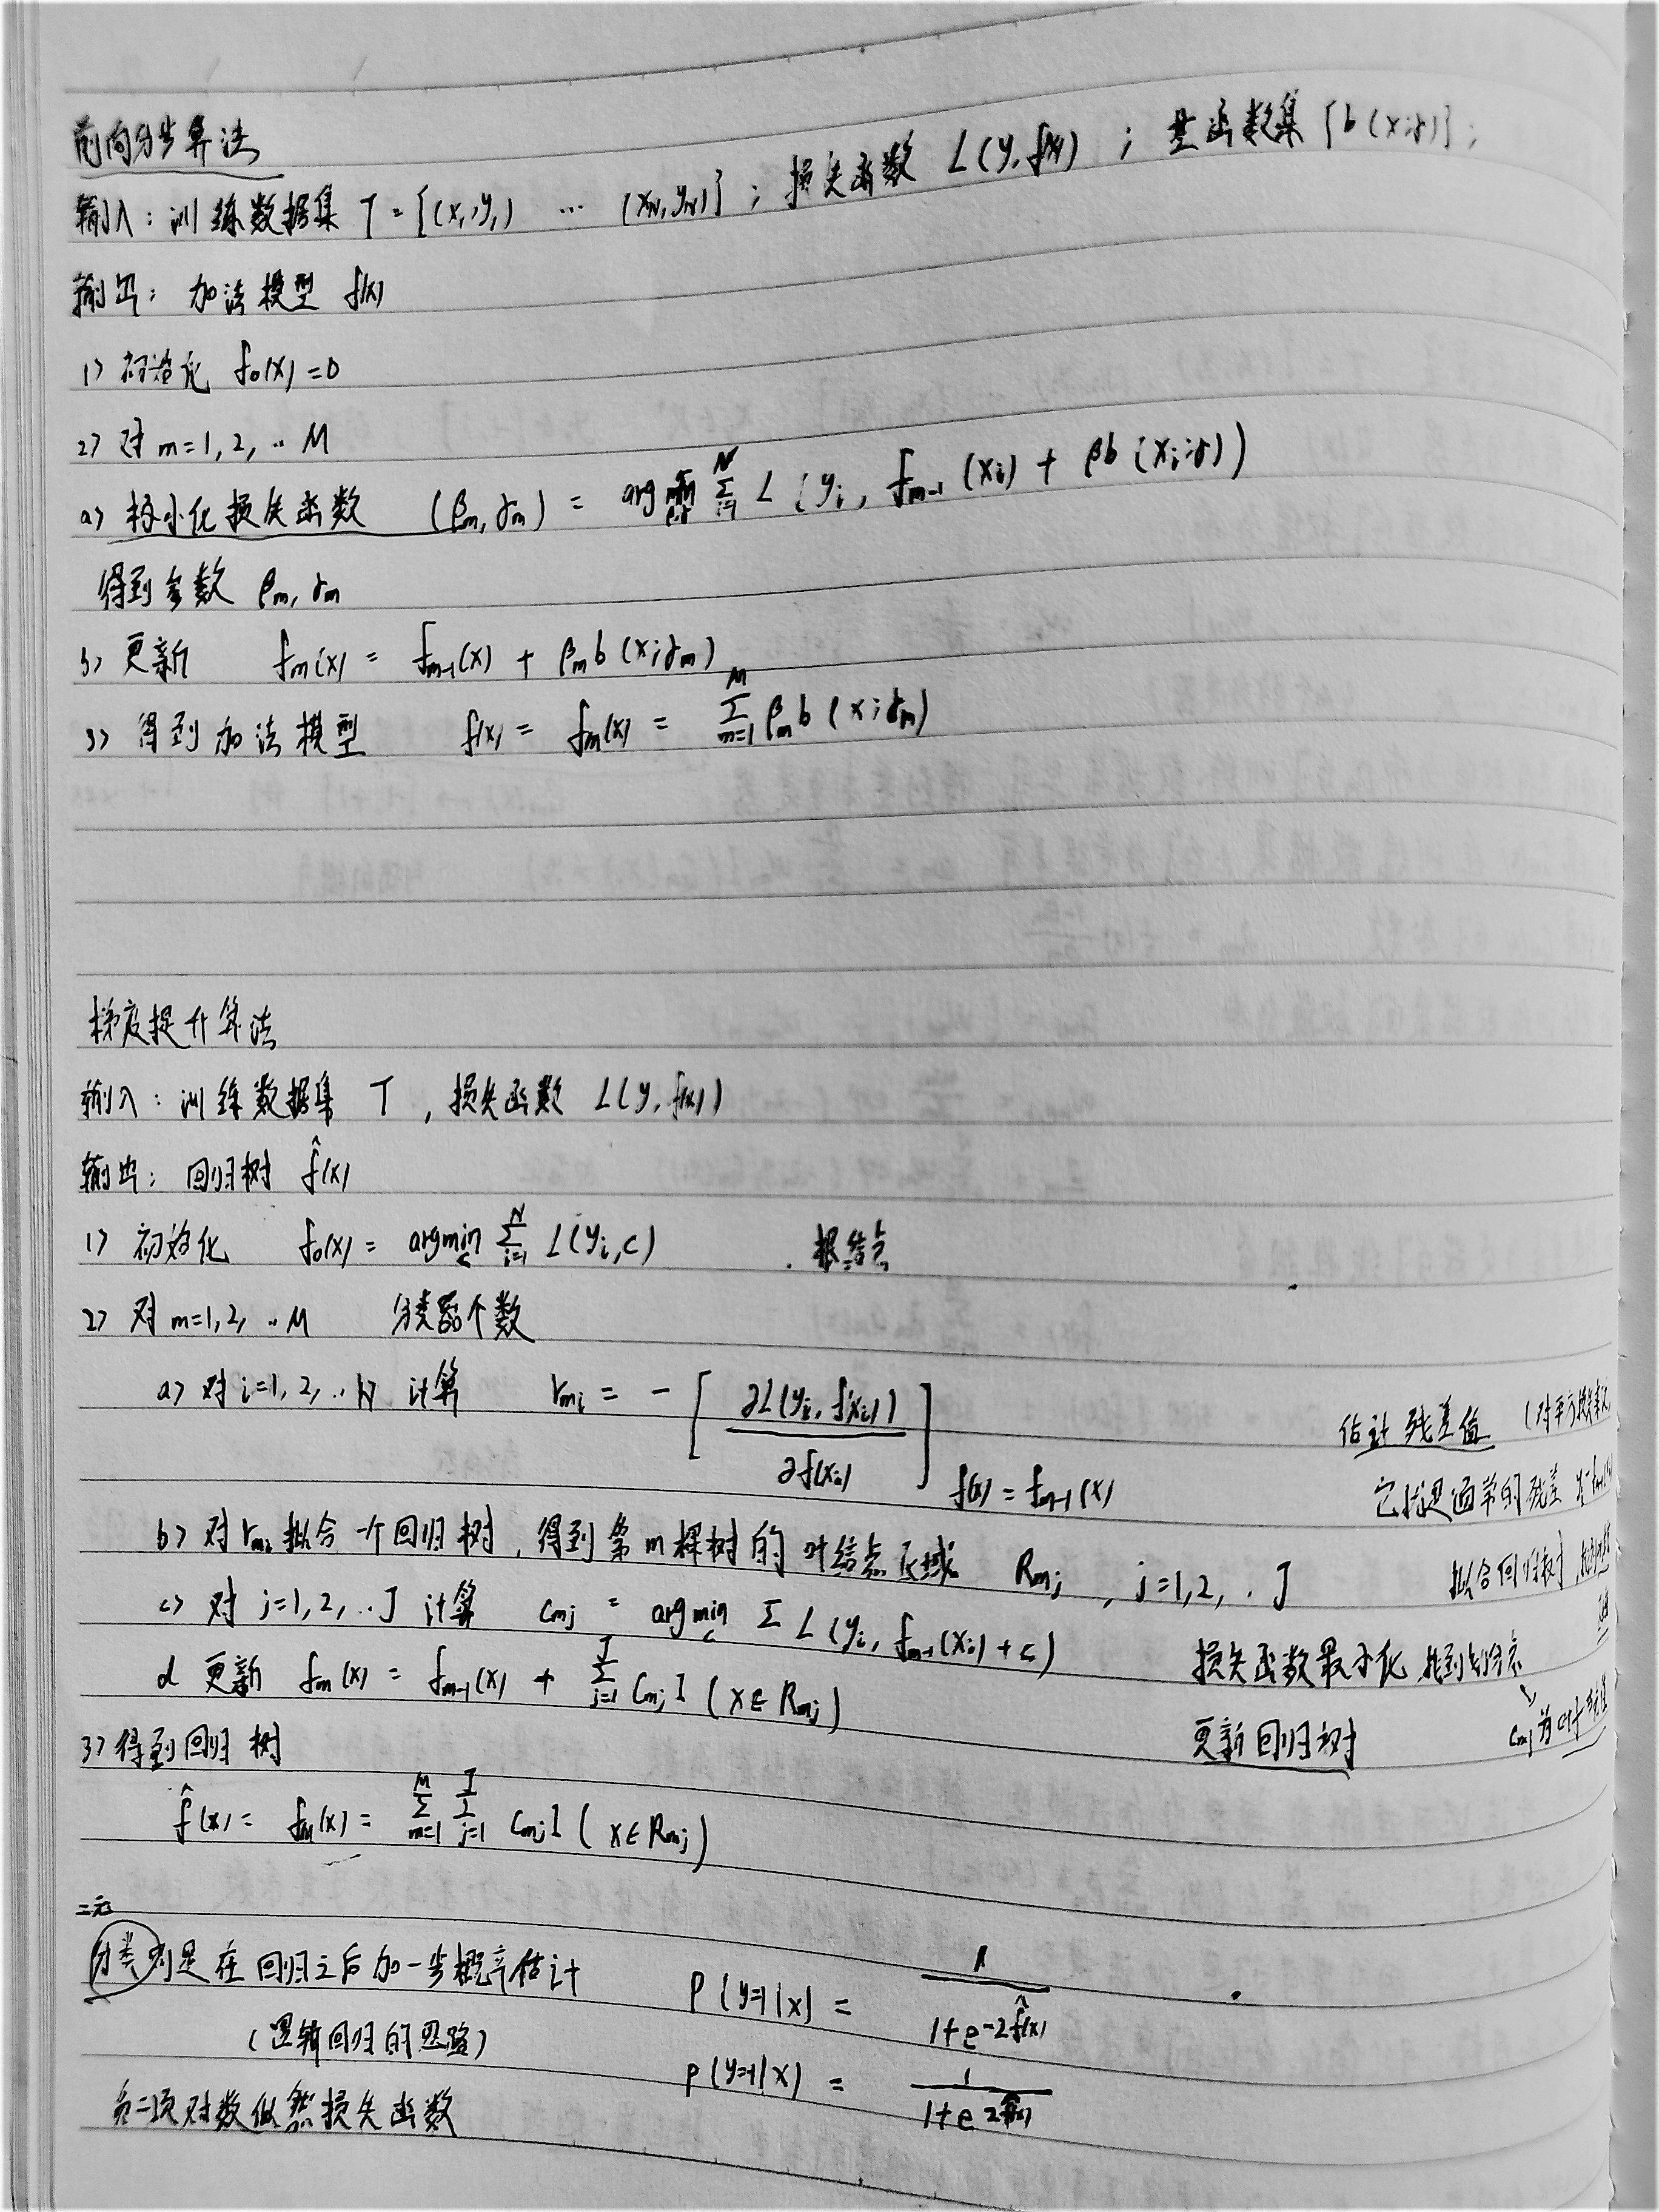 前向分步算法
输入：训练数据集 T={(x₁,y₁) … (x_N,y_N)}；损失函数 L(y,f(x))；基函数集{b(x;γ)};
输出：加法模型 f(x)
1) 初始化 f₀(x)=0
2) 对 m=1,2,..M
a) 极小化损失函数 (β_m,γ_m) = arg min_{β,γ} Σ_{i=1}^{N} L(y_i, f_{m-1}(x_i) + βb(x_i;γ))
得到参数 β_m, γ_m
b) 更新 f_m(x) = f_{m-1}(x) + β_m b(x;γ_m)
3) 得到加法模型 f(x) = f_M(x) = Σ_{m=1}^{M} β_m b(x;γ_m)
梯度提升算法
输入：训练数据集 T，损失函数 L(y,f(x))
输出：回归树 f̂(x)
1) 初始化 f₀(x) = argmin_c Σ_{i=1}^{N} L(y_i,c) 根结点
2) 对 m=1,2,..M 分类器个数
a) 对 i=1,2,..N 计算 r_{mi} = -[∂L(y_i,f(x_i))/∂f(x_i)]_{f(x)=f_{m-1}(x)} 估计残差值 (对平方损失
它就是通常的残差
b) 对 r_{mi} 拟合一个回归树，得到第m棵树的叶结点区域 R_{mj}, j=1,2,..J 拟合回归树
c) 对 j=1,2,..J 计算 c_{mj} = argmin_c Σ L(y_i, f_{m-1}(x_i)+c) 损失函数最小化 找到划分点
d 更新 f_m(x) = f_{m-1}(x) + Σ_{j=1}^{J} c_{mj} I(x∈R_{mj}) 更新回归树 c_{mj}为
3) 得到回归树
f̂(x) = f_M(x) = Σ_{m=1}^{M} Σ_{j=1}^{J} c_{mj} I(x∈R_{mj})
二元
分类则是在回归之后加一步概率估计 P(y=1|x) = 1/(1+e^{-2f̂(x)})
(逻辑回归的思路)
负二项对数似然损失函数 P(y=-1|x) = 1/(1+e^{2f̂(x)})